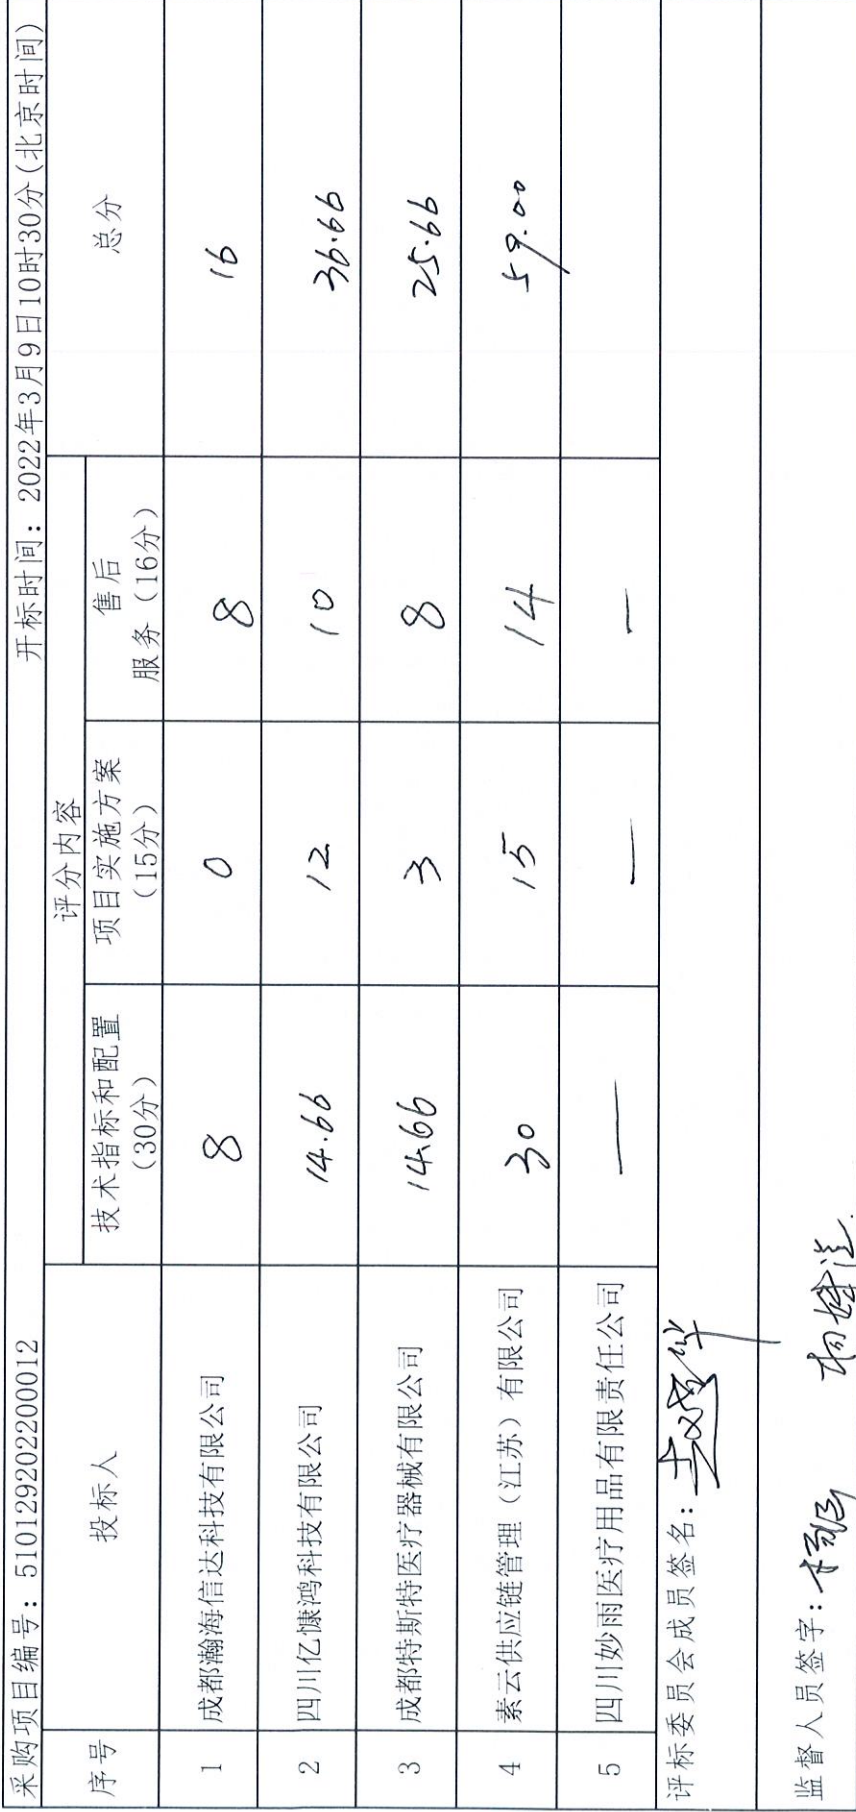 采购项目编号：510129202200012 开标时间：2022年3月9日10时30分(北京时间)
序号 投标人 评分内容 总分
技术指标和配置（30分） 项目实施方案（15分） 售后服务（16分）
1 成都瀚海信达科技有限公司 8 0 8 16
2 四川亿慷鸿科技有限公司 14.66 12 10 36.66
3 成都特斯特医疗器械有限公司 14.66 3 8 25.66
4 素云供应链管理（江苏）有限公司 30 15 14 59.00
5 四川妙雨医疗用品有限责任公司 — — —
评标委员会成员签名：
监督人员签字：